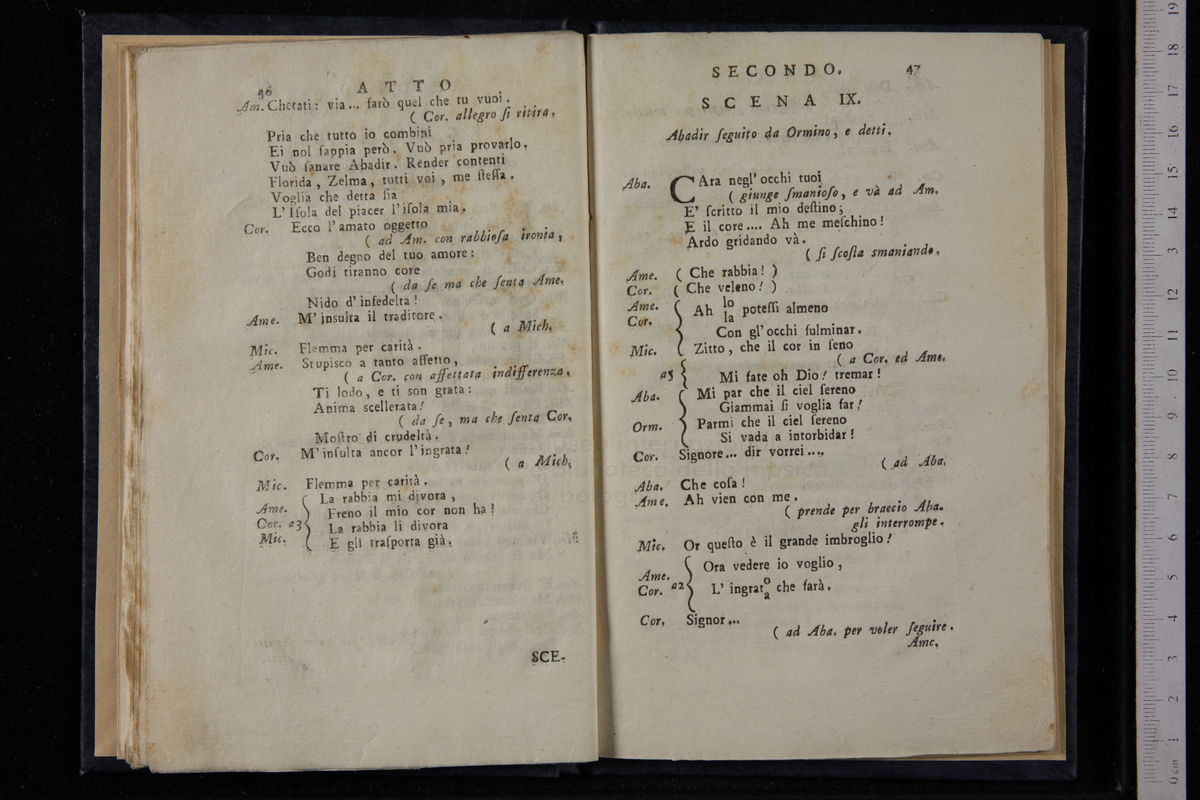 46 ATTO
Am. Chetati: via... farò quel che tu vuoi.
( Cor. allegro ſi ritira.
Pria che tutto io combini
Ei nol ſappia però. Vuò pria provarlo,
Vuò ſanare Abadir. Render contenti
Florida, Zelma, tutti voi, me ſteſſa.
Voglia che detta ſia
L'Iſola del piacer l'iſola mia.
Cor. Ecco l'amato oggetto
( ad Am. con rabbioſa ironia,
Ben degno del tuo amore:
Godi tiranno core
( da ſe ma che ſenta Ame.
Nido d'infedeltà!
Ame. M'inſulta il traditore.
( a Mich.
Mic. Flemma per carità.
Ame. Stupisco a tanto affetto,
( a Cor. con affettata indifferenza.
Ti lodo, e ti son grata:
Anima scellerata!
( da ſe, ma che ſenta Cor.
Moſtro di crudeltà.
Cor. M'inſulta ancor l'ingrata!
( a Mich.
Mic. Flemma per carità.
La rabbia mi divora,
Ame. Freno il mio cor non ha!
Cor. a3 La rabbia li divora
Mic. E gli traſporta già.
SCE-
SECONDO. 47
SCENA IX.
Abadir ſeguito da Ormino, e detti.
Aba. CAra negl'occhi tuoi
( giunge ſmanioſo, e và ad Am.
E' ſcritto il mio deſtino;
E il core.... Ah me meſchino!
Ardo gridando và.
( ſi ſcoſta smaniando.
Ame. ( Che rabbia! )
Cor. ( Che veleno! )
Ame. Ah lo poteſſi almeno
Cor. la
Con gl'occhi fulminar.
Mic. Zitto, che il cor in ſeno
( a Cor. ed Ame.
a5 Mi fate oh Dio! tremar!
Aba. Mi par che il ciel ſereno
Giammai ſi voglia far!
Orm. Parmi che il ciel ſereno
Si vada a intorbidar!
Cor. Signore... dir vorrei....
( ad Aba.
Aba. Che coſa!
Ame. Ah vien con me.
( prende per braecio Aba.
gli interrompe.
Mic. Or queſto è il grande imbroglio!
Ora vedere io voglio,
Ame.
Cor. a2 L' ingrato che farà.
a
Cor. Signor...
( ad Aba. per voler ſeguire.
Ame.